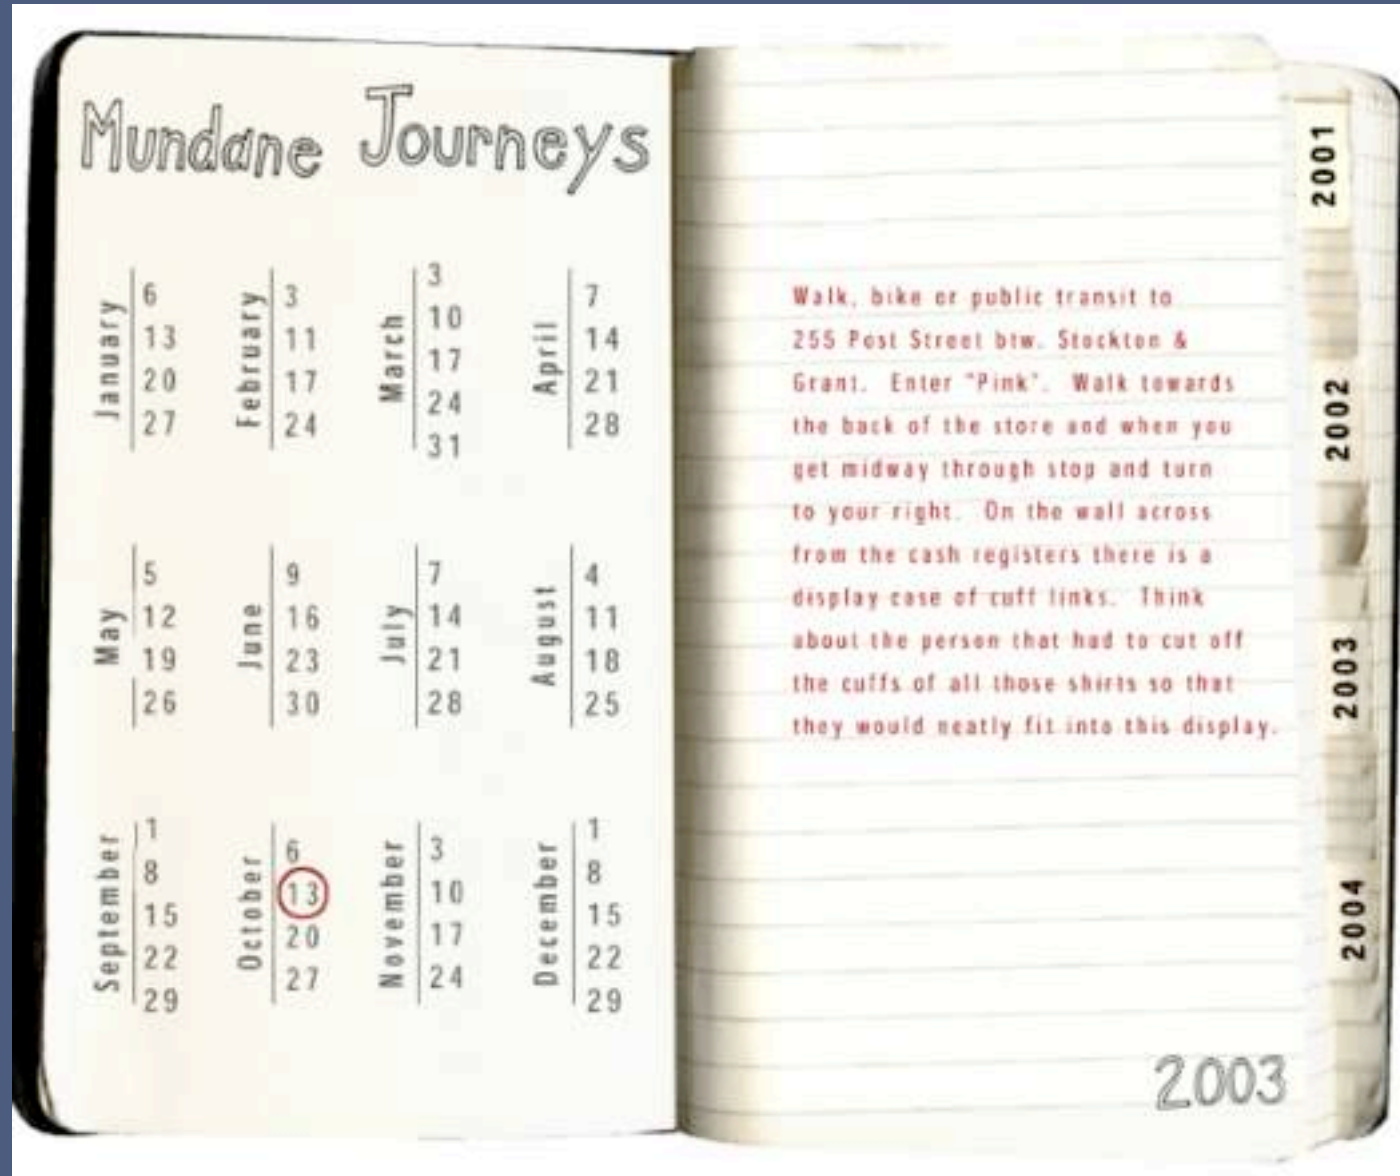 Mundane Journeys
January
6
13
20
27
February
3
11
17
24
March
3
10
17
24
31
April
7
14
21
28
May
5
12
19
26
June
9
16
23
30
July
7
14
21
28
August
4
11
18
25
September
1
8
15
22
29
October
6
13
20
27
November
3
10
17
24
December
1
8
15
22
29
Walk, bike or public transit to
255 Post Street btw. Stockton &
Grant. Enter "Pink". Walk towards
the back of the store and when you
get midway through stop and turn
to your right. On the wall across
from the cash registers there is a
display case of cuff links. Think
about the person that had to cut off
the cuffs of all those shirts so that
they would neatly fit into this display.
2003
2001
2002
2003
2004